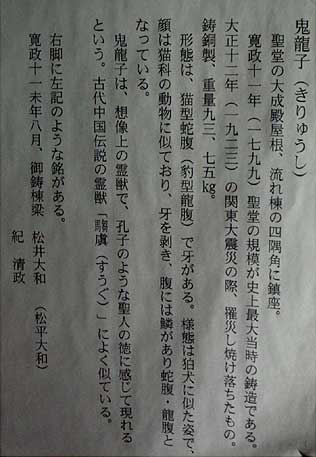 鬼龍子（きりゅうし）
聖堂の大成殿屋根、流れ棟の四隅角に鎮座。
寛政十一年（一七九九）聖堂の規模が史上最大当時の鋳造である。
大正十二年（一九二三）の関東大震災の際、罹災し焼け落ちたもの。
鋳銅製、重量九三、七五㎏。
形態は、猫型蛇腹（豹型龍腹）で牙がある。様態は狛犬に似た姿で、
顔は猫科の動物に似ており、牙を剥き、腹には鱗があり蛇腹・龍腹と
なっている。
鬼龍子は、想像上の霊獣で、孔子のような聖人の徳に感じて現れる
という。古代中国伝説の霊獣「騶虞（すうぐ）」によく似ている。
右脚に左記のような銘がある。
寛政十一未年八月、御鋳棟梁　松井大和　（松平大和）
紀　清政